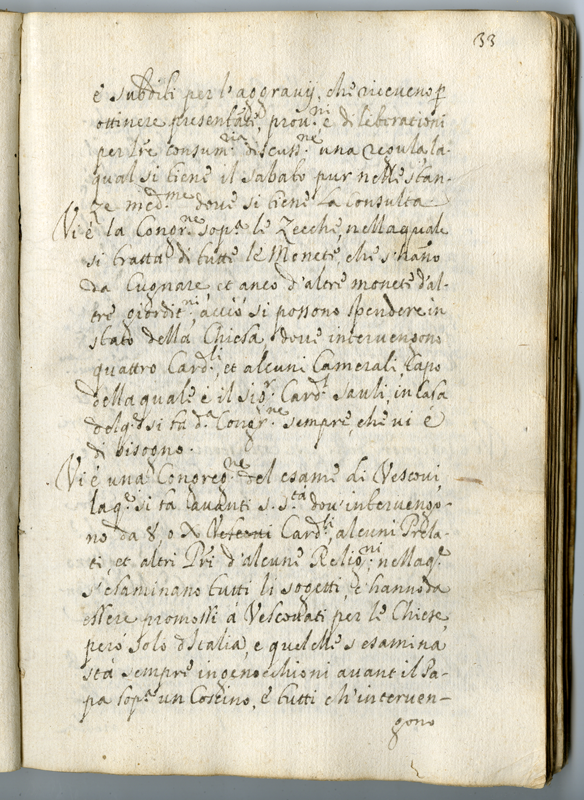 33
e sudditi per l'aggravij, che riceveno p
ottinere presentate, prou.ni e di liberationi
per
una regula la
qual si tiene il sabato pur nelle stan-
ze med.me dove si tiene la Consulta
Vi è la Congr.ne sop.a le Zecche, nella quale
si tratta di tutte le Monete, che s'hano
da Cugnare et anco d'altre monete d'al-
tre acciò si possono spendere in
stato della Chiesa, dove intervengono
quattro Card.li, et alcuni Camerali, Capo
della quale è il sig.r Card.l Sauli, in Casa
del q.e si fa d.a Congr.ne sempre, che vi é
di bisogno.
Vi é una Congreg.ne del esame di Vescovi
la q.e si fa avanti S. S.tà dov'intervengo-
no da 8, o X Vescovi Card.li, alcuni Prela-
ti, et altri Pri d'alcune Relig.ni nella q.e
s'esaminano tutti li sogetti, c'hanno da
essere promossi á Vescovati per le Chiese
però solo d'Italia, e quel che s'esamina
stà sempre ingenocchioni avant'il Pa-
pa sop.a un Coscino, e tutti ch'interven-
gono